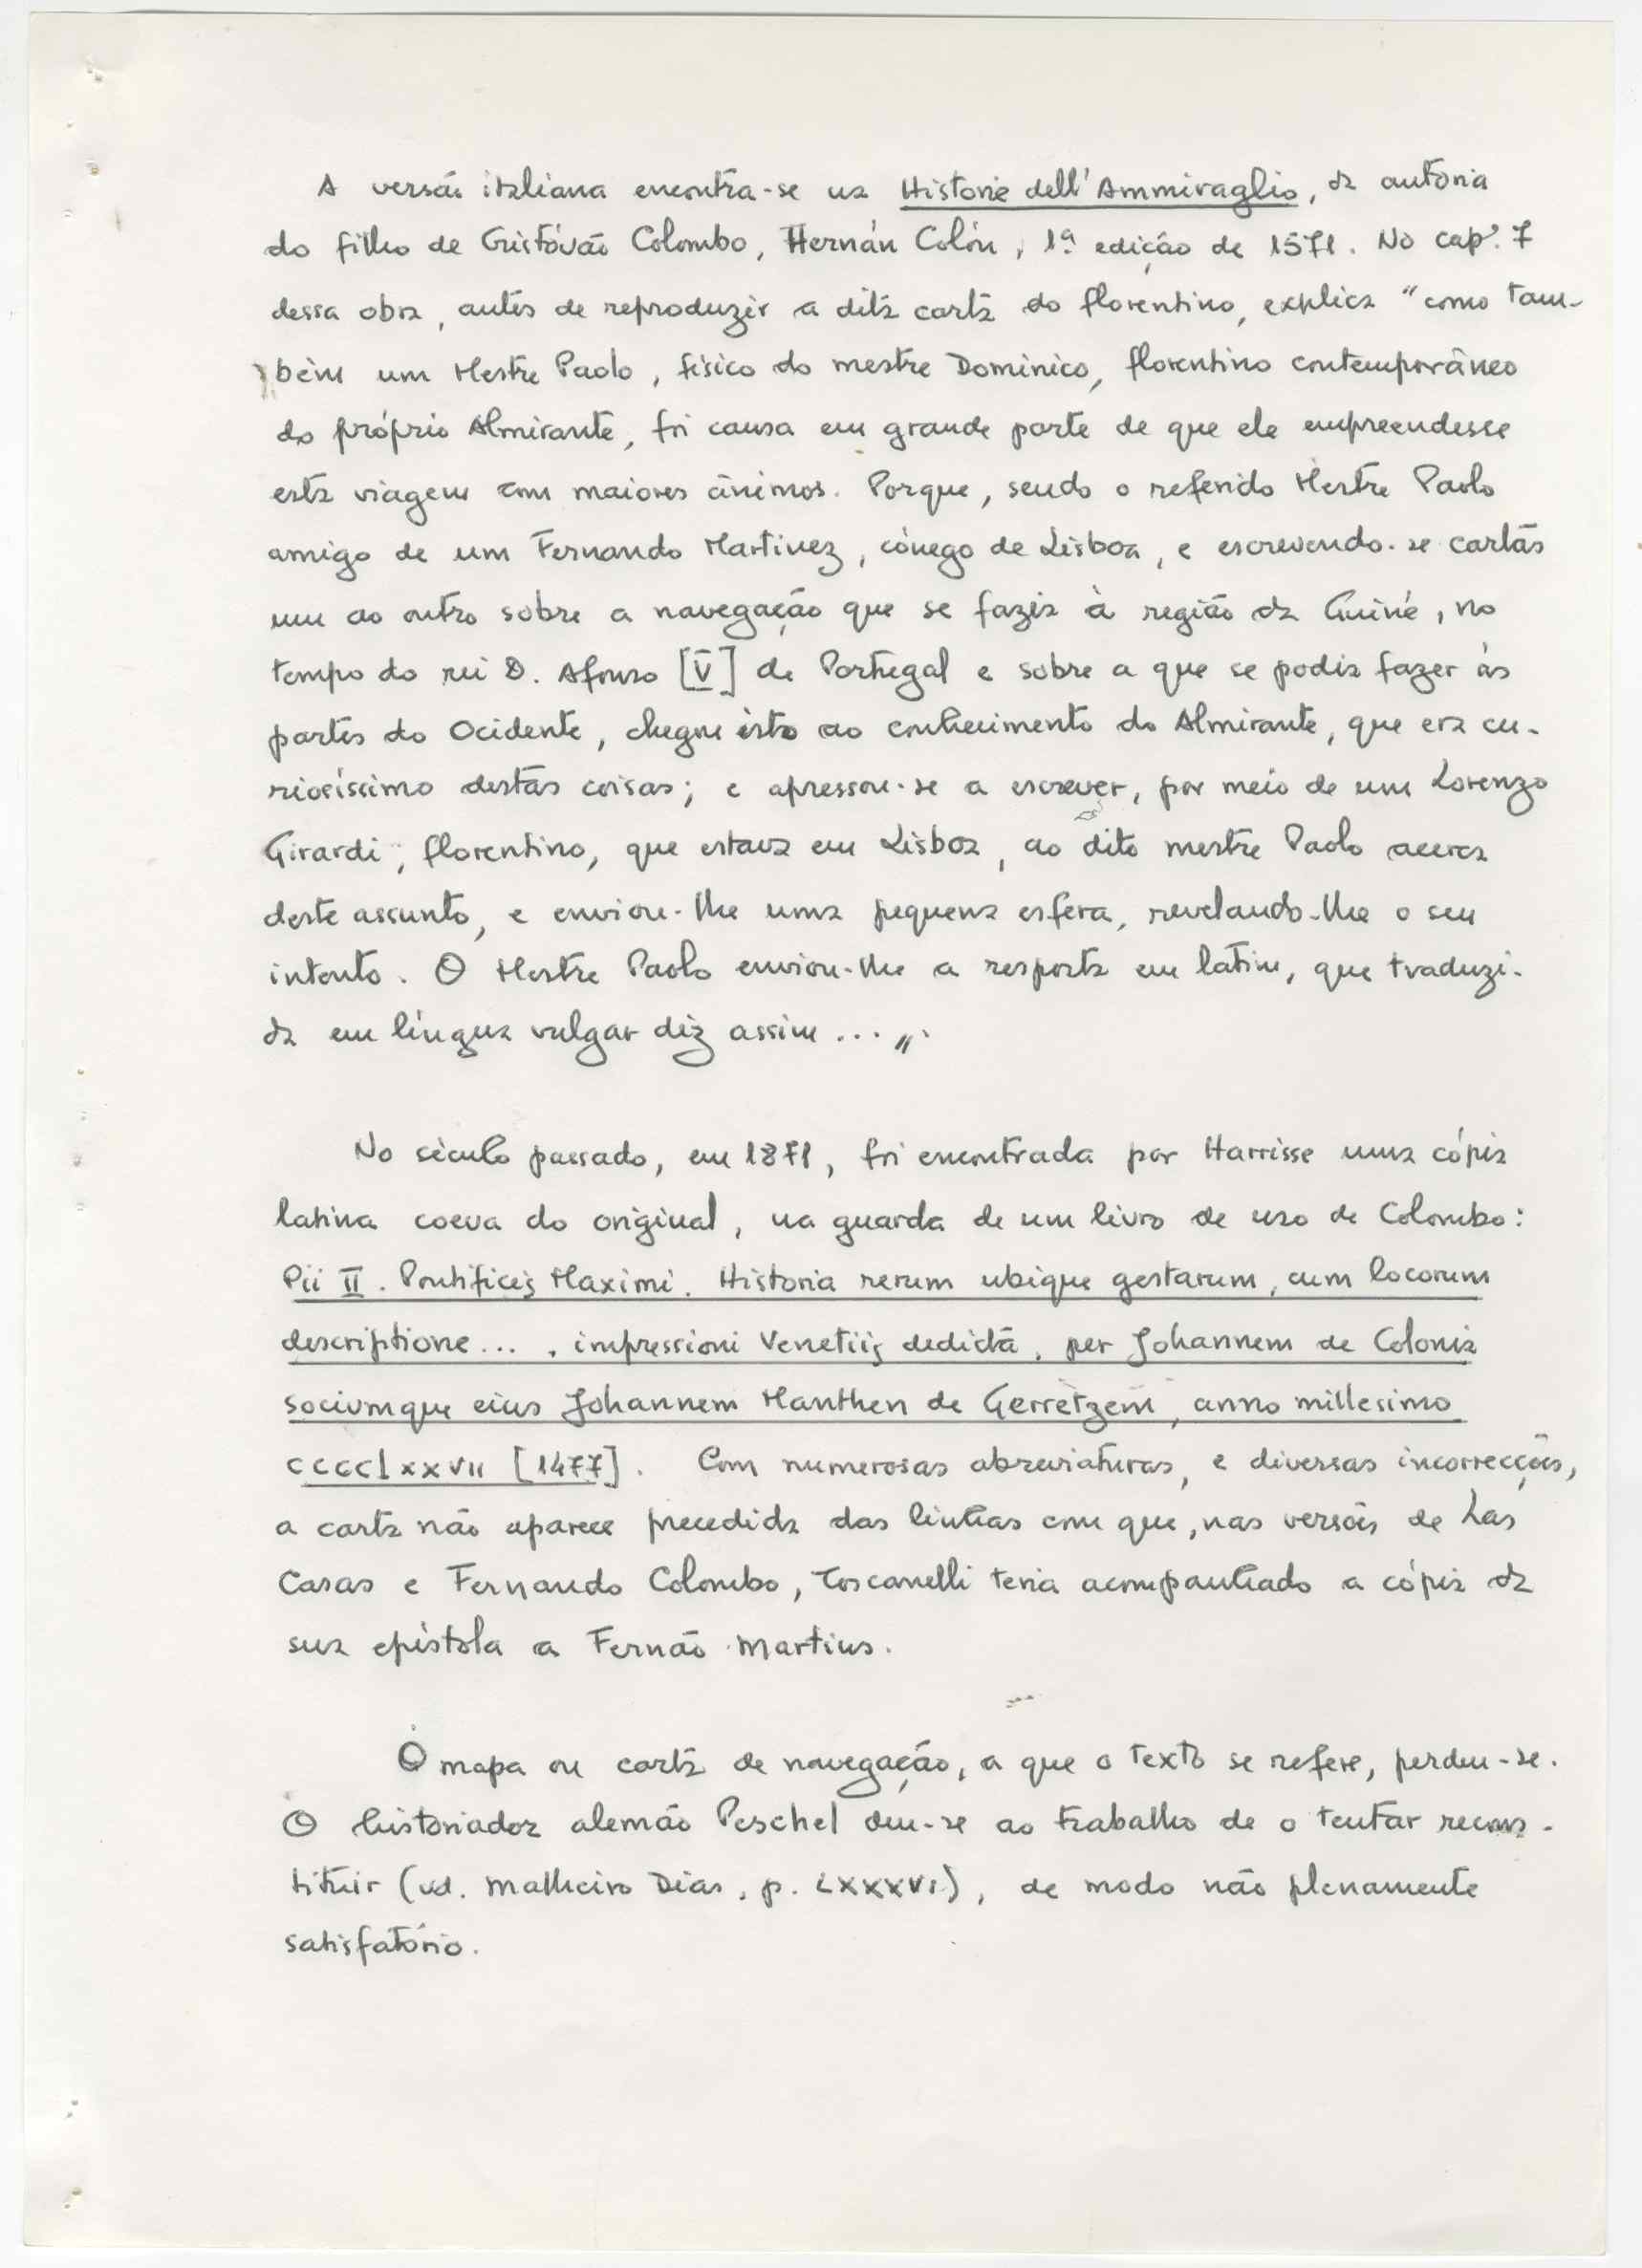 A versão italiana encontra-se na Historie dell'Ammiraglio, da autoria
do filho de Cristóvão Colombo, Hernán Colón, 1ª edição de 1571. No cap.º 7
dessa obra, antes de reproduzir a dita carta do florentino, explica "como tam-
bém um Mestre Paolo, físico do mestre Dominico, florentino contemporâneo
do próprio Almirante, foi causa em grande parte de que ele empreendesse
esta viagem com maiores ânimos. Porque, sendo o referido Mestre Paolo
amigo de um Fernando Martinez, cónego de Lisboa, e escrevendo-se cartas
um ao outro sobre a navegação que se fazia à região da Guiné, no
tempo do rei D. Afonso [V] de Portugal e sobre a que se podia fazer às
partes do Ocidente, chegou isto ao conhecimento do Almirante, que era cu-
riosíssimo destas coisas; e apressou-se a escrever, por meio de um Lorenzo
Girardi, florentino, que estava em Lisboa, ao dito mestre Paolo acerca
deste assunto, e enviou-lhe uma pequena esfera, revelando-lhe o seu
intento. O Mestre Paolo enviou-lhe a resposta em latim, que traduzi-
da em língua vulgar diz assim ...".
No século passado, em 1871, foi encontrada por Harrisse uma cópia
latina coeva do original, na guarda de um livro de uso de Colombo:
Pii II. Pontificis Maximi. Historia rerum ubique gestarum, cum locorum
descriptione... . impressioni Venetiis dedicta, per Johannem de Colonia
sociumque eius Johannem Manthen de Gerretzem, anno millesimo
CCCClxxVII [1477]. Com numerosas abreviaturas, e diversas incorrecções,
a carta não aparece precedida das linhas com que, nas versões de Las
Casas e Fernando Colombo, Toscanelli teria acompanhado a cópia da
sua epístola a Fernão Martins.
O mapa ou carta de navegação, a que o texto se refere, perdeu-se.
O historiador alemão Peschel deu-se ao trabalho de o tentar recons-
tituir (vd. Malheiro Dias, p. LXXXVI), de modo não plenamente
satisfatório.